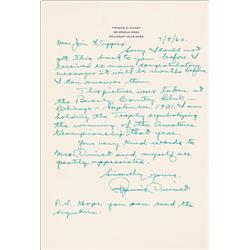 FRANCIS D. OUIMET
WELLESLEY HILLS, MASS.
Dear Jim Wiggins,
Sorry I could not
get this back to you before. I
received so many congratulatory
messages it will be months before
I can answer them.
This picture was taken
at the Beverly Country Club -
Chicago - September, 1931. I am
holding the Trophy symbolizing
the winning of the Amateur
Championship that year.
Your very kind words to
Mrs. Ouimet and myself are
greatly appreciated.
Sincerely yours,
Francis Ouimet
P.S. Hope you can read the
signature.